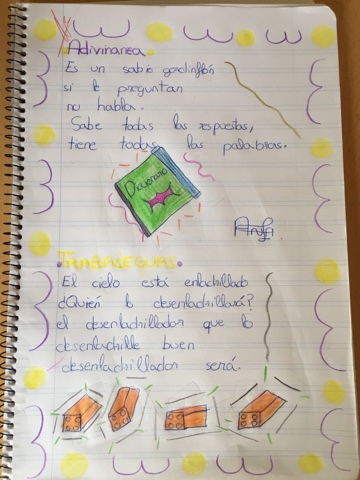 Adivinanza.
Es un sabio gordinflón
si le preguntan
no habla.
Sabe todas las respuestas,
tiene todas las palabras.
Diccionario
TRABALEGUAS.
El cielo está enladrillado
¿Quién lo desenladrillará?
el desenladrillador que lo
desenladrille buen
desenladrillador será.